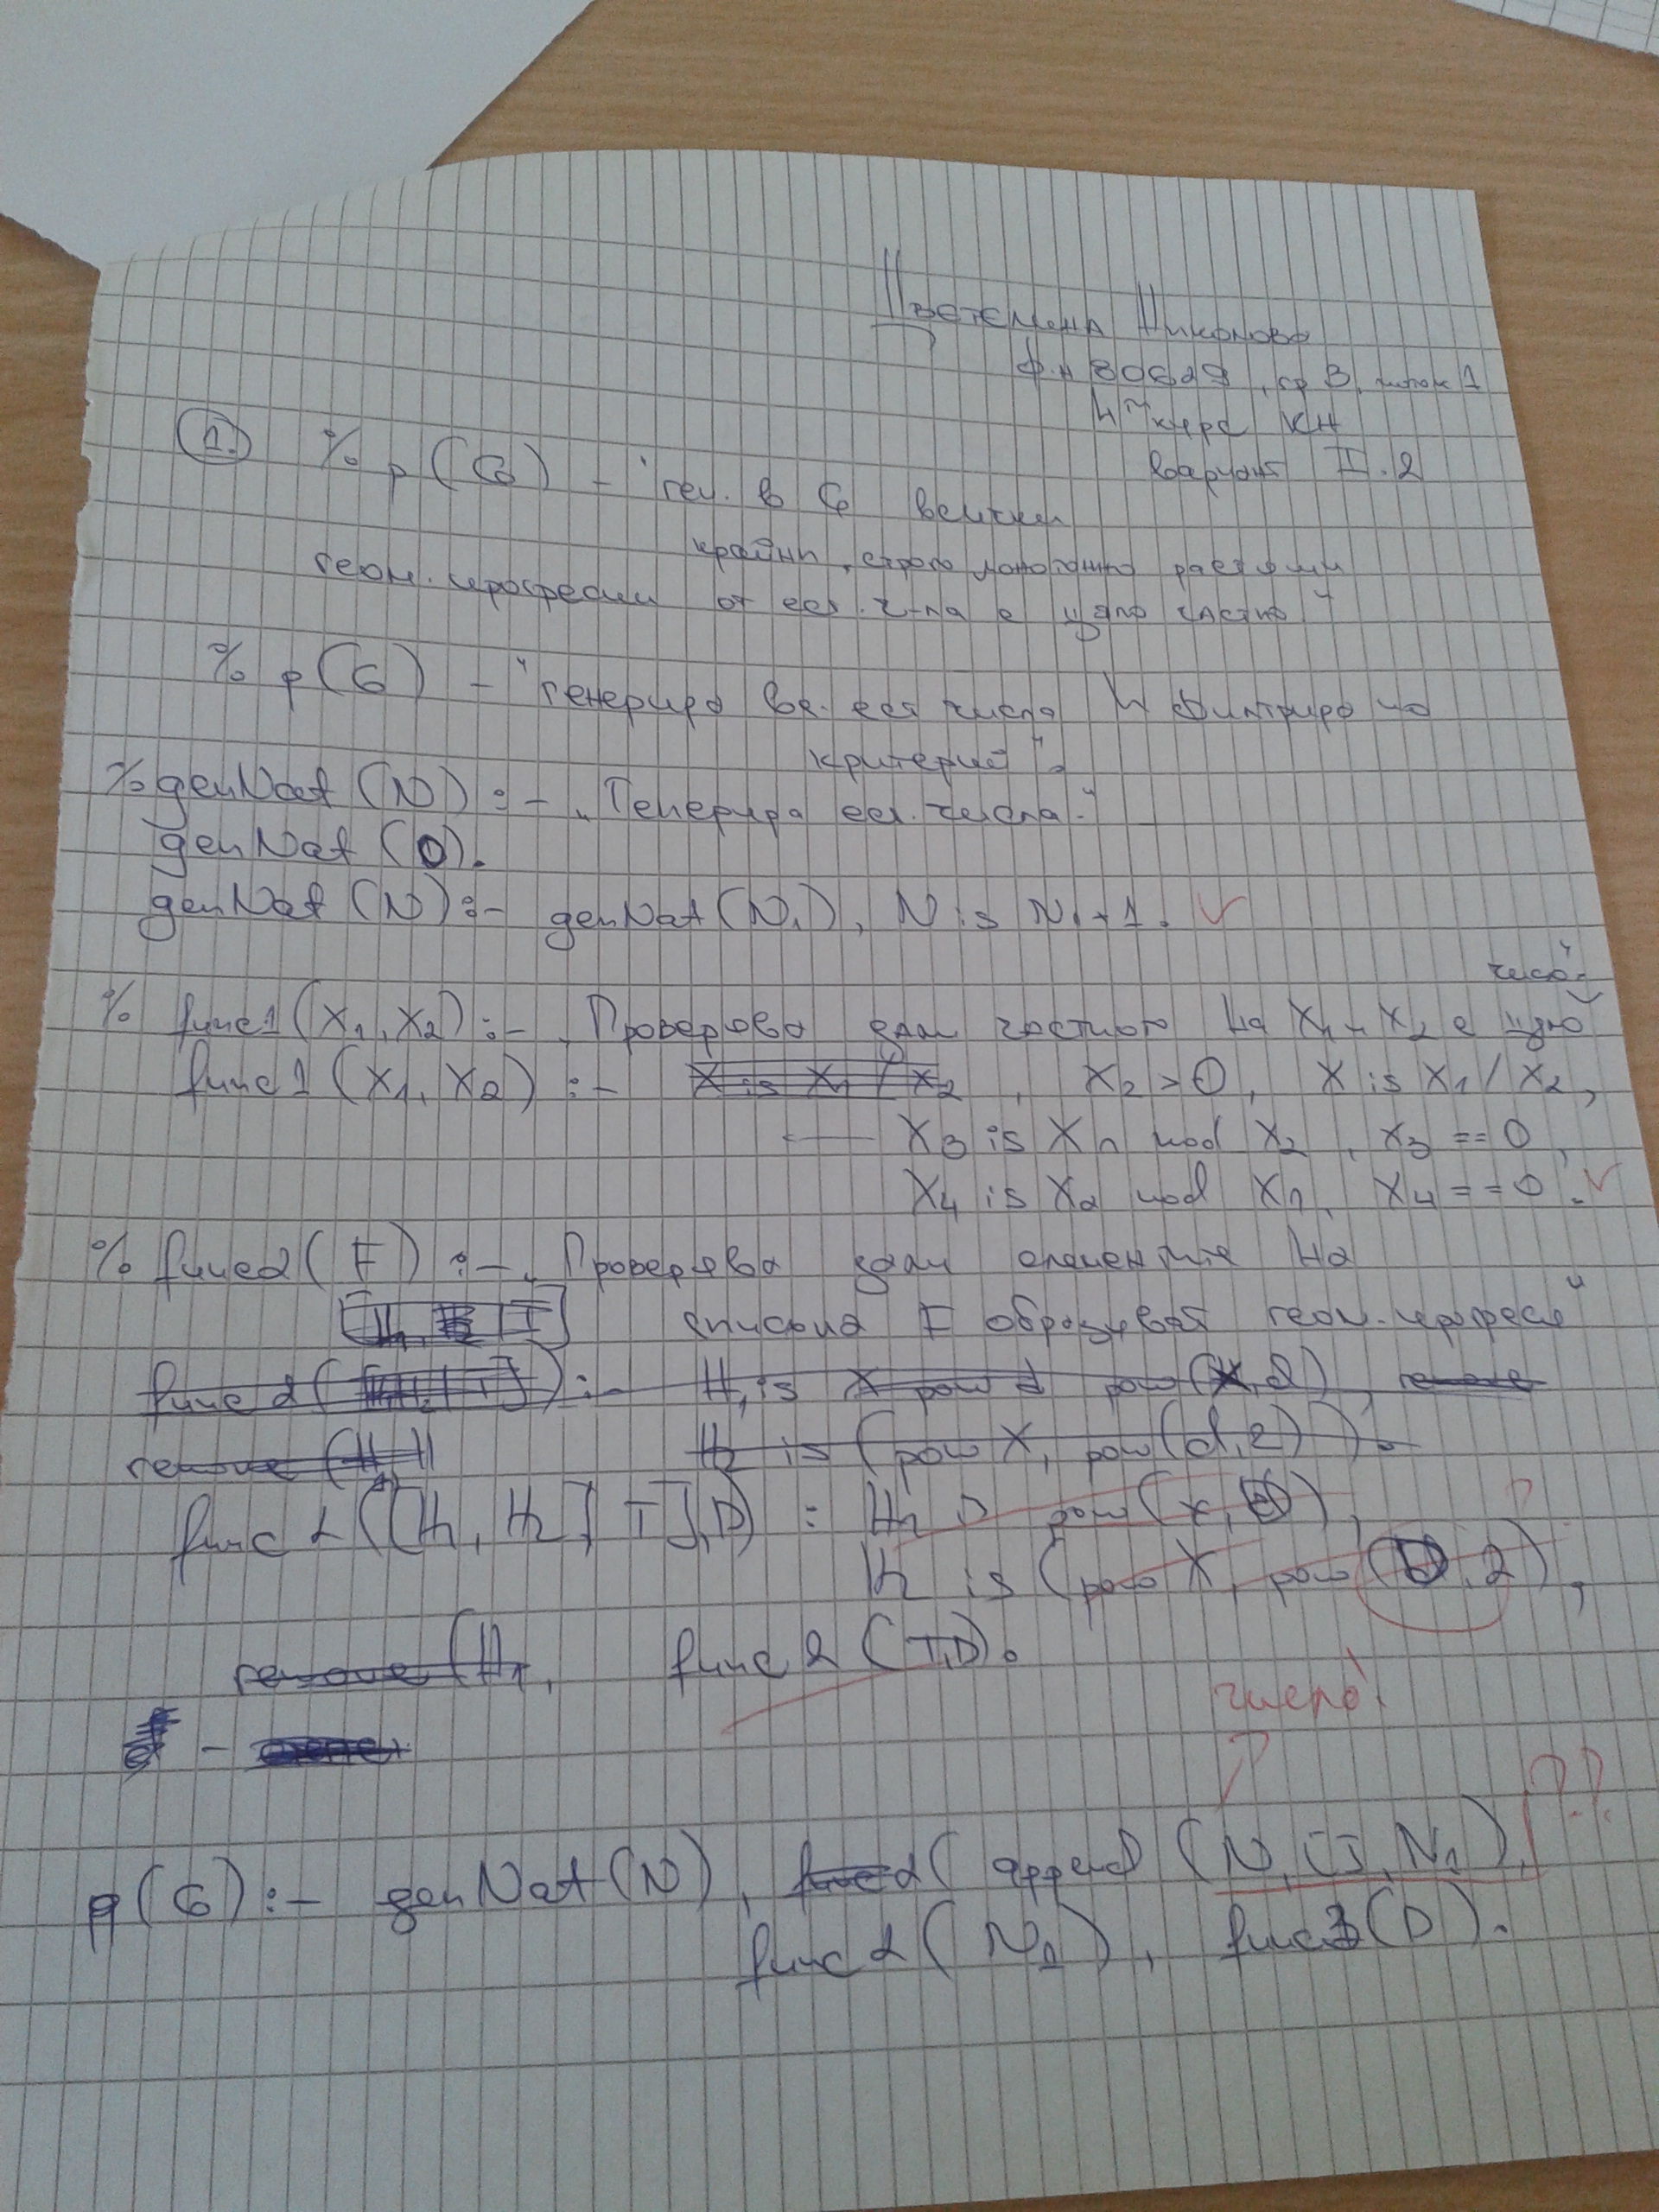 Цветелина Николова
ф.н 80629, гр 3, поток 1
4ти курс КН
вариант II.2
1. % p(G) - "ген. в G всички
крайни, строго монотонно растящи
геом. прогресии от ест. ч-ла с цяло частно"
% p(G) - "генерира вс. ест числа и филтрира по
критерий".
% genNat(N) :- "Генерира ест. числа."
genNat(0).
genNat(N):- genNat(N1), N is N1+1. ✓
число"
% func1(X1, X2) :- "Проверява дали частното на X1 и X2 е цяло
func1(X1, X2) :- X is X1 / X2, X2 > 0, X is X1 / X2,
X3 is X1 mod X2, X3 == 0,
X4 is X2 mod X1, X4 == 0. ✓
% func2(F) :- "Проверява дали елементите на
списъка F образуват геом. прогресия"
func2( :- H1 is X pow d pow(X,2),
remove(H H2 is (pow X, pow(d,2)).
func2([H1, H2 | T],D) : H1 is pow(X,D), ?
H2 is (pow X, pow(D,2),
remove(H1, func2(T,D).
число!
p(G):- genNat(N), func2( append(N,[],N1), ??
func2(N1), func3(D).